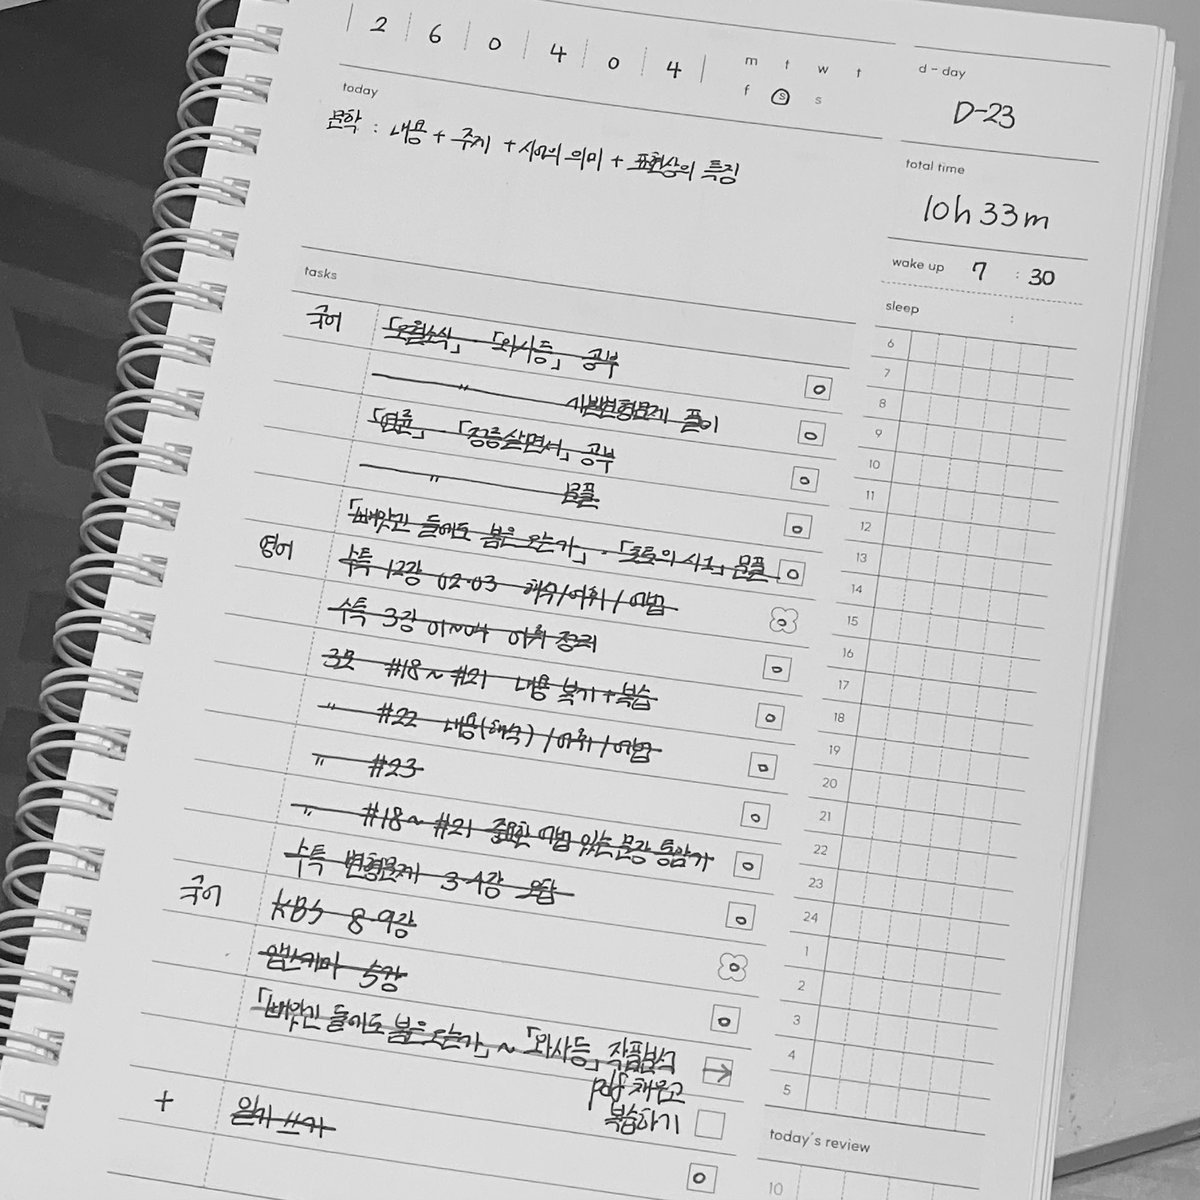 2 6 0 4 0 4
m t w t
f s s
d-day
D-23
today
문학 : 내용 + 주제 + 시어의 의미 + 표현상의 특징
total time
10h 33m
wake up 7 : 30
sleep :
tasks
국어 「오월소식」 · 「와사등」 공부
" 사발변형문제 풀이
「연륜」 · 「정릉살면서」 공부
" 문풀
「빼앗긴 들에도 봄은 오는가」 · 「초토의 시1」 문풀
영어 수특 12강 02·03 해석/어휘/어법
수특 3강 01~04 어휘 정리
3모 #18~#21 내용 복기+복습
" #22 내용(해석)/어휘/어법
" #23
" #18~#21 중요한 어법 있는 문장 통암기
수특 변형문제 3·4강 오답
국어 KBS 8·9강
앱스키마 5강
「빼앗긴 들에도 봄은 오는가」 ~ 「와사등」 작품분석
pdf 채우고
복습하기
+ 일기 쓰기
6
7
8
9
10
11
12
13
14
15
16
17
18
19
20
21
22
23
24
1
2
3
4
5
today's review
10